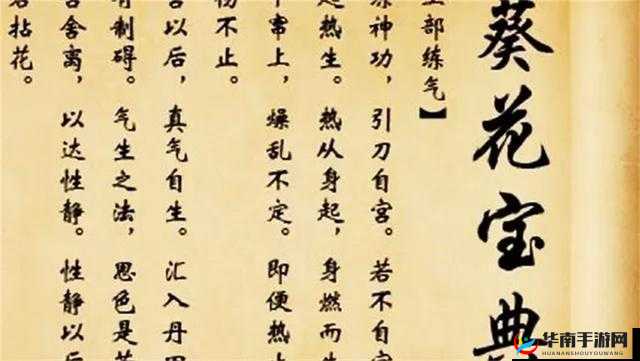 葵花宝典
部练气】
练神功，引刀自宫。若不自宫
起热生。热从身起，身燃而生
窜上，燥乱不定。即便热止
伤不止。
宫以后，真气自生。汇入丹田
有制碍。气生之法，思色是苦
舍离，以达性静。性静以后
若拈花。
华南手游网
HUANANSHOUYOUWANG